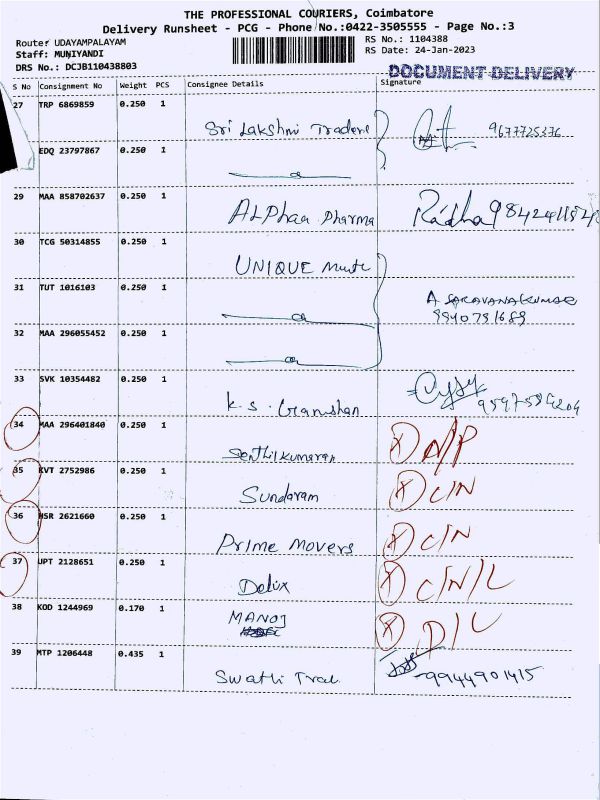 THE PROFESSIONAL COURIERS, Coimbatore
Delivery Runsheet - PCG - Phone No.:0422-3505555 - Page No.:3
Route: UDAYAMPALAYAM RS No.: 1104388
Staff: MUNIYANDI RS Date: 24-Jan-2023
DRS No.: DCJB110438803 DOCUMENT DELIVERY
S No Consignment No Weight PCS Consignee Details Signature
27 TRP 6869859 0.250 1
Sri Lakshmi Traders 9677725376
EDQ 23797867 0.250 1
29 MAA 858702637 0.250 1
ALPhaa Pharma Radha
30 TCG 50314855 0.250 1
UNIQUE
31 TUT 1016103 0.250 1 A SARAVANAKUMAR
32 MAA 296055452 0.250 1
33 SVK 10354482 0.250 1
K.S.
34 MAA 296401840 0.250 1
Senthilkumaran
35 KVT 2752986 0.250 1
Sundaram C/N
36 NSR 2621660 0.250 1
Prime Movers C/N
37 JPT 2128651 0.250 1
Delix C/N/L
38 KOD 1244969 0.170 1
MANOJ D/L
39 MTP 1206448 0.435 1
Swathi Trad 9944901415